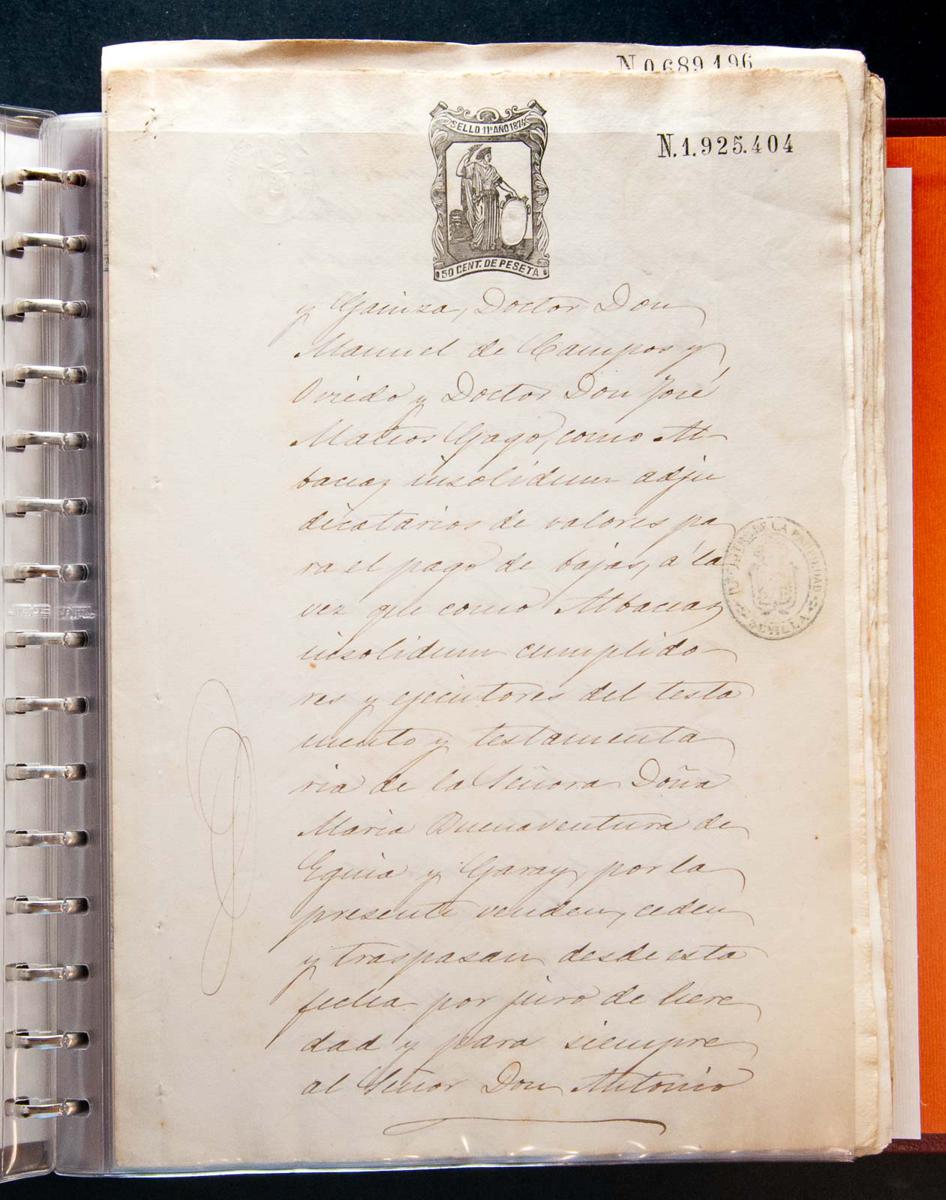 N.0.689.196
SELLO 11º AÑO 1874
N.1.925.404
50 CENT. DE PESETA
y Gainza, Doctor Don
Manuel de Campos y
Oviedo y Doctor Don José
Mateos Gago, como Al-
baceas insolidum adju
dicatarios de valores pa
ra el pago de bajas, á la
vez que como Albaceas
insolidum cumplido-
res y ejecutores del testa
mento y testamenta
ria de la Señora Doña
Maria Buenaventura de
Eguia y Garay, por la
presente venden, ceden
y traspasan desde esta
fecha por juro de here
dad y para siempre
al Señor Don Antonio
DE LA PROPIEDAD
SEVILLA